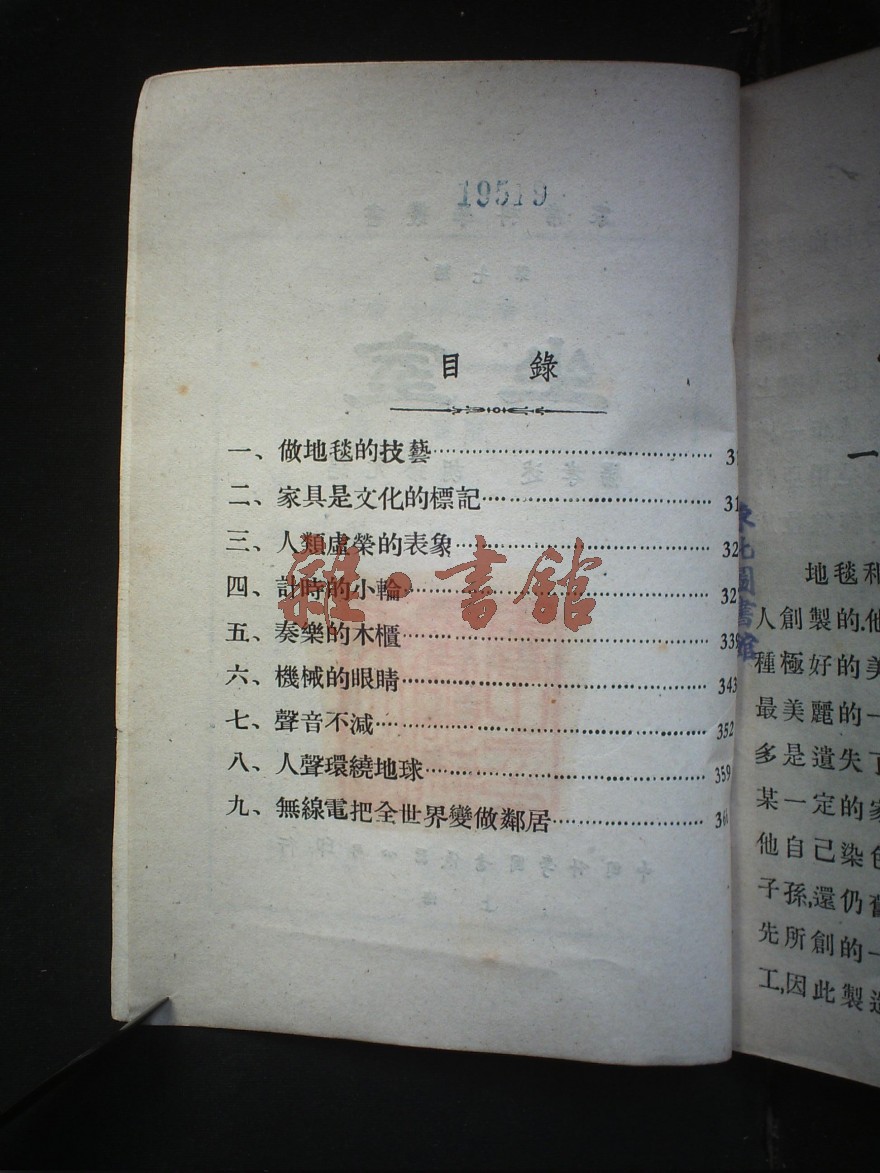 19519
目錄
一、做地毯的技藝
二、家具是文化的標記
三、人類虛榮的表象
四、計時的小輪
五、奏樂的木櫃
六、機械的眼睛 343
七、聲音不減 352
八、人聲環繞地球 359
九、無線電把全世界變做鄰居
雜·書館
東北圖書館
一
地毯和
人創製的.他
種極好的美
最美麗的一
多是遺失了
某一定的家
他自己染色
子孫,還仍舊
先所創的一
工,因此製造